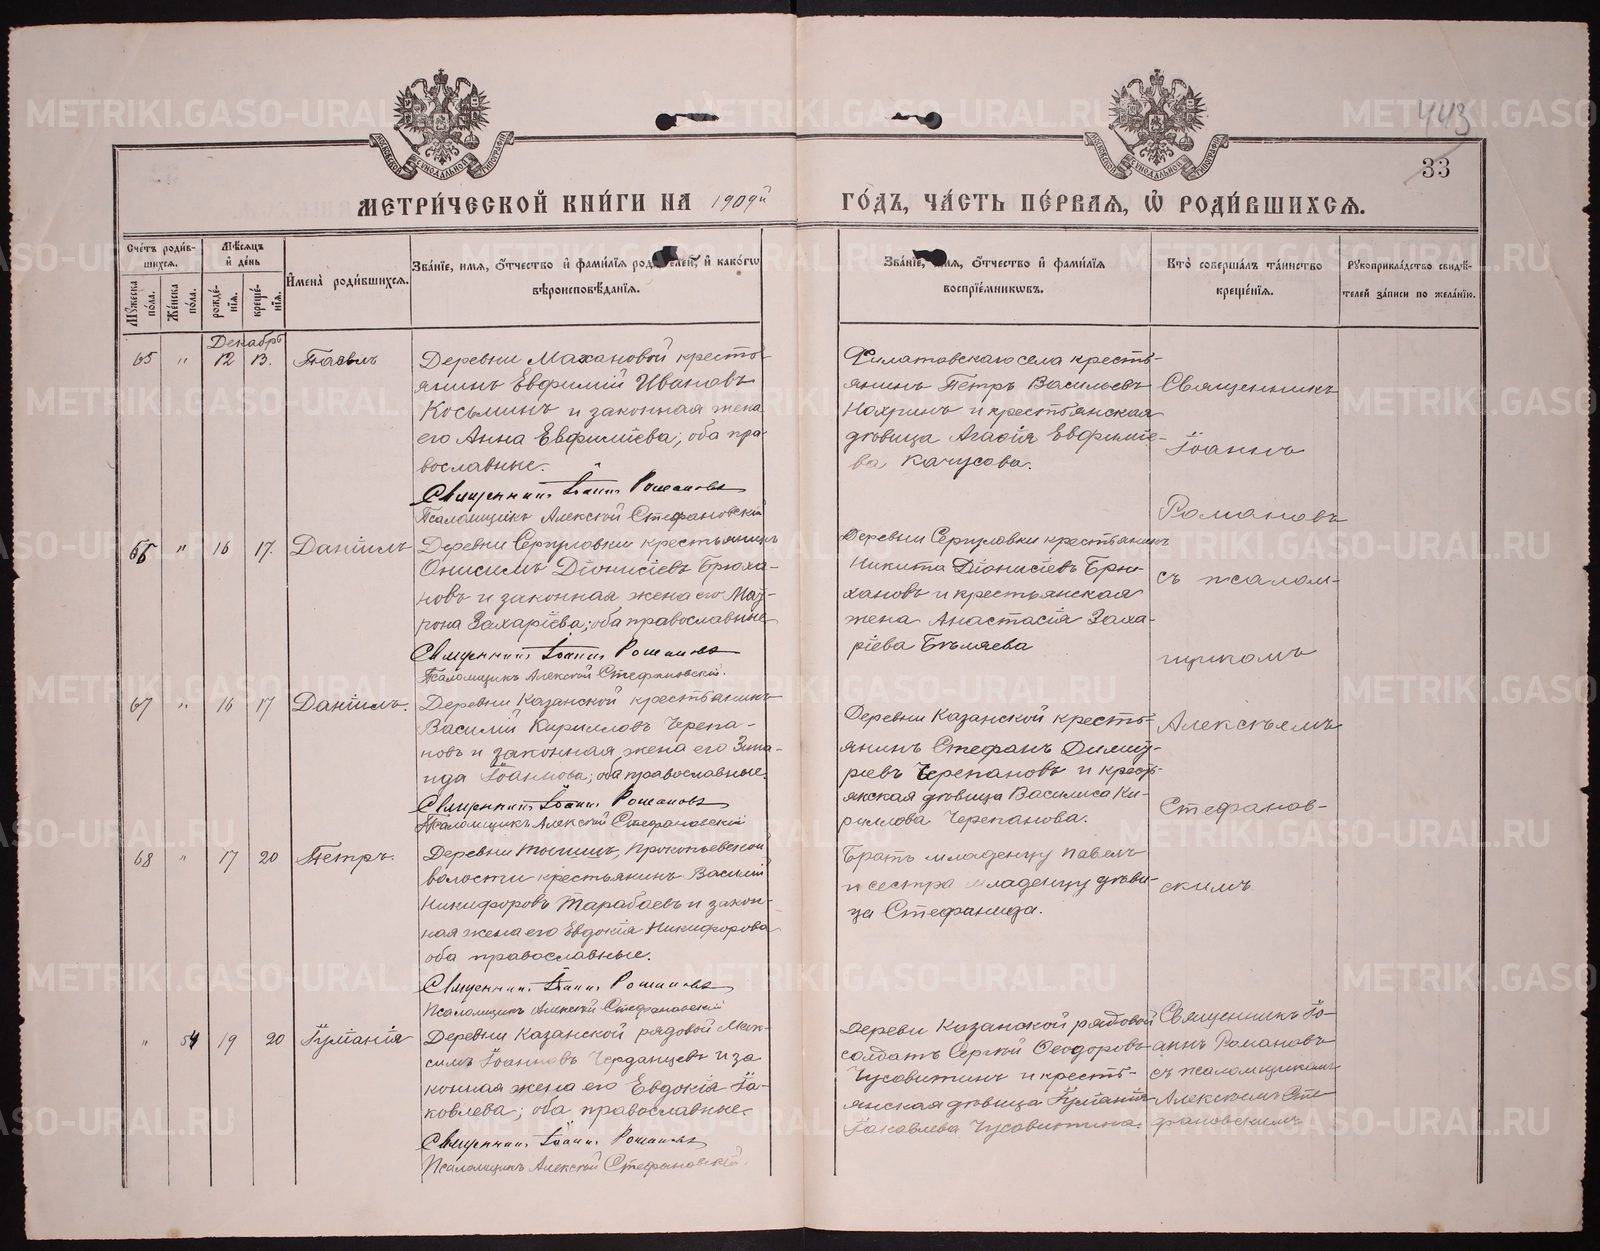 443
33
МЕТРИ́ЧЕСКОЙ КНИ́ГИ НА 1909й ГО́ДЪ, ЧА́СТЬ ПЕ́РВАЯ, Ѿ РОДИ́ВШИХСЯ.
Счетъ роди́вшихся.
Мꙋжеска по́ла.
Же́нска по́ла.
Мѣ́сяцъ и де́нь
рожде́нія.
креще́нія.
Имена̀ роди́вшихся.
Зва́ніе, имя, отчество и фамилія родителей, и како́гѡ
вѣроисповѣ́данія.
Зва́ніе, имя, отчество и фамилія
воспріе́мникѡвъ.
Кто̀ соверша́лъ та́инство
креще́нія.
Рꙋкоприкла́дство свидѣ́-
телей за́писи по жела́нію.
Декабрь
65 " 12 13. Павелъ
Деревни Махановой кресть-
янинъ Евфимій Ивановъ
Косьминъ и законная жена
его Анна Евфиміева; оба пра-
вославные.
Священникъ Іоаннъ Романовъ
Псаломщикъ Алексѣй Стефановскій
Филатовскаго села кресть-
янинъ Петръ Васильевъ
Нохринъ и крестьянская
дѣвица Агафія Евфиміе-
ва Качусова.
Священникъ
Іоаннъ
Романовъ
съ псалом-
щикомъ
Алексѣемъ
Стефанов-
скимъ
66 " 16 17. Даніилъ
Деревни Сергуловки крестьянинъ
Онисимъ Діонисіевъ Брюха-
новъ и законная жена его Мат-
рона Захаріева; оба православные
Священникъ Іоаннъ Романовъ
Псаломщикъ Алексѣй Стефановскій.
Деревни Сергуловки крестьянинъ
Никита Діонисіевъ Брю-
хановъ и крестьянская
жена Анастасія Заха-
ріева Бѣляева
67 " 16 17 Даніилъ.
Деревни Казанской крестьянинъ
Василій Кирилловъ Черепа-
новъ и законная жена его Зина-
ида Іоаннова; оба православные.
Священникъ Іоаннъ Романовъ
Псаломщикъ Алексѣй Стефановскій
Деревни Казанской кресть-
янинъ Стефанъ Димит-
ріевъ Черепановъ и кресть-
янская дѣвица Василиса Ки-
риллова Черепанова.
68 " 17 20 Петръ.
Деревни Прокопьевской
волости крестьянинъ Василій
Никифоровъ Тарабаевъ и закон-
ная жена его Евдокія Никифорова
оба православные.
Священникъ Іоаннъ Романовъ
Псаломщикъ Алексѣй Стефановскій
Братъ младенцу Павелъ
и сестра младенцу дѣви-
ца Стефанида.
" 54 19 20 Іуліанія
Деревни Казанской рядовой Мак-
симъ Іоанновъ Черданцевъ и за
конная жена его Евдокія Іа-
ковлева; оба православные.
Священникъ Іоаннъ Романовъ
Псаломщикъ Алексѣй Стефановскій.
Дереви Казанской рядовой
солдатъ Сергѣй Ѳеодоровъ
Чусовитинъ и кресть-
янская дѣвица Іуліанія
Іаковлева Чусовитина.
Священникъ Іо-
аннъ Романовъ
съ псаломщикомъ
Алексѣемъ Сте-
фановскимъ